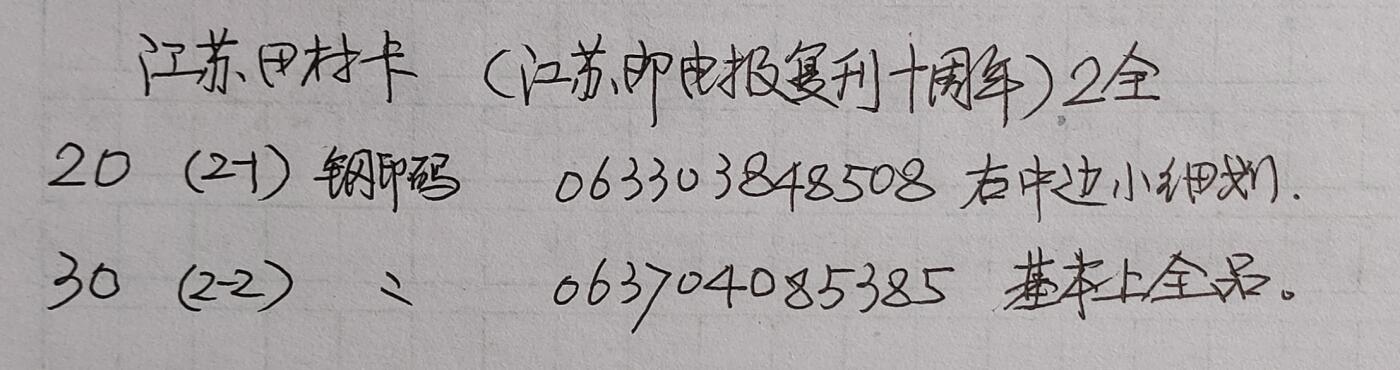 江苏田村卡 (江苏邮电报复刊十周年) 2全
20 (2-1) 钢印码 063303848508 右中边小细划.
30 (2-2) 〃 063704085385 基本上全品。